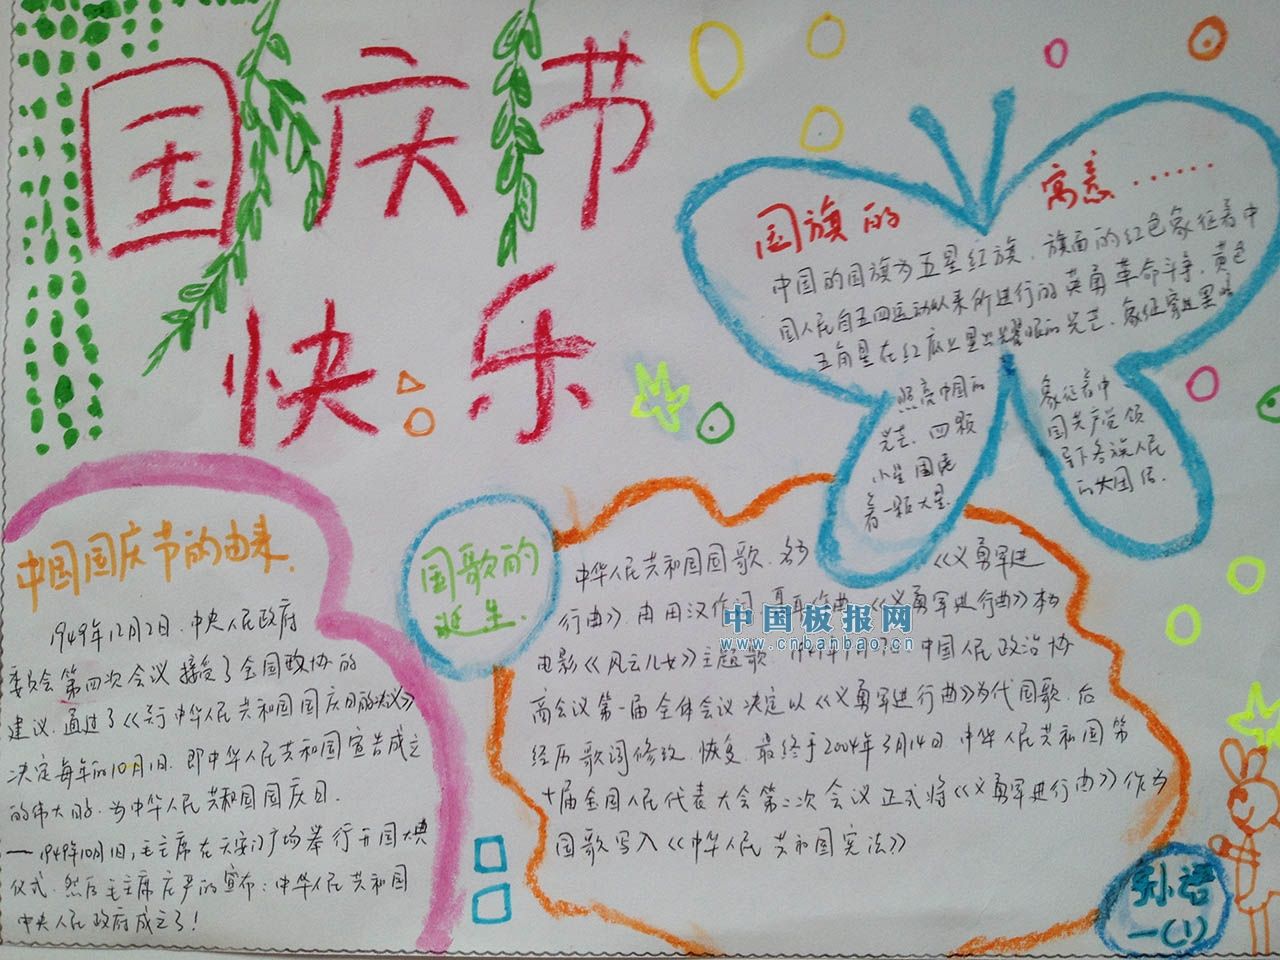 国庆节
快乐
国旗的
寓意……
中国的国旗为五星红旗，旗面的红色象征着中
国人民自五四运动以来所进行的英勇革命斗争，黄色
五角星在红底上显出耀眼的光芒，象征
照亮中国的
光芒，四颗
小星围
着一颗大星
象征着中
国共产党领
导下各族人民
的大团结.
中国国庆节的由来.
1949年12月2日，中央人民政府
委员会第四次会议接受了全国政协的
建议，通过了《关于中华人民共和国国庆日的决议》
决定每年的10月1日，即中华人民共和国宣告成立
的伟大日，为中华人民共和国国庆日.
一1949年10月1日，毛主席在天安门广场举行开国大典
仪式，然后毛主席庄严的宣布：中华人民共和国
中央人民政府成立了！
国歌的
诞生.
中华人民共和国国歌，名为《义勇军进
行曲》，由田汉作词，《义勇军进行曲》本为
电影《风云儿女》主题歌 中国人民政治协
商会议第一届全体会议决定以《义勇军进行曲》为代国歌，后
经历歌词修改、恢复，最终于2004年3月14日，中华人民共和国第
十届全国人民代表大会第二次会议正式将《义勇军进行曲》作为
国歌写入《中华人民共和国宪法》
中国板报网
www.cnbanbao.cn
孙语
一(1)